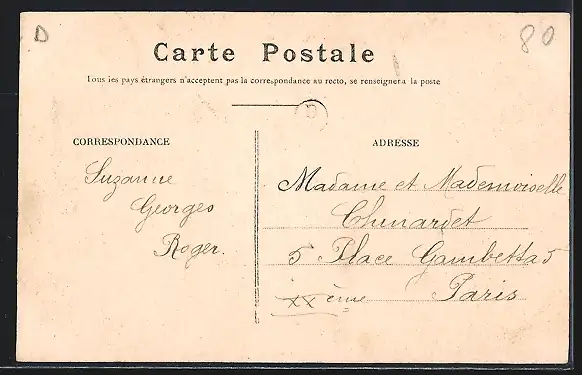 D
80
Carte Postale
Tous les pays étrangers n'acceptent pas la correspondance au recto, se renseigner à la poste
D
CORRESPONDANCE
Suzanne
Georges
Roger.
ADRESSE
Madame et Mademoiselle
Chenardet
5 Place Gambetta 5
XXème Paris